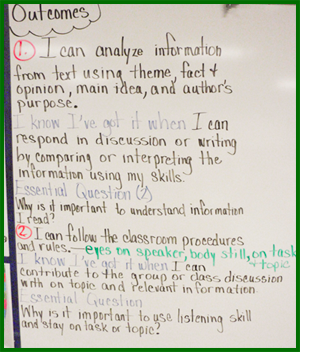 Outcomes
1. I can analyze information
from text using theme, fact +
opinion, main idea, and author's
purpose.
I know I've got it when I can
respond in discussion or writing
by comparing or interpreting the
information using my skills.
Essential Question (?)
Why is it important to understand information
I read?
2. I can follow the classroom procedures
and rules. — eyes on speaker, body still, on task
+ topic
I know I've got it when I can
contribute to the group or class discussion
with on topic and relevant information.
Essential Question
Why is it important to use listening skill
and stay on task or topic?